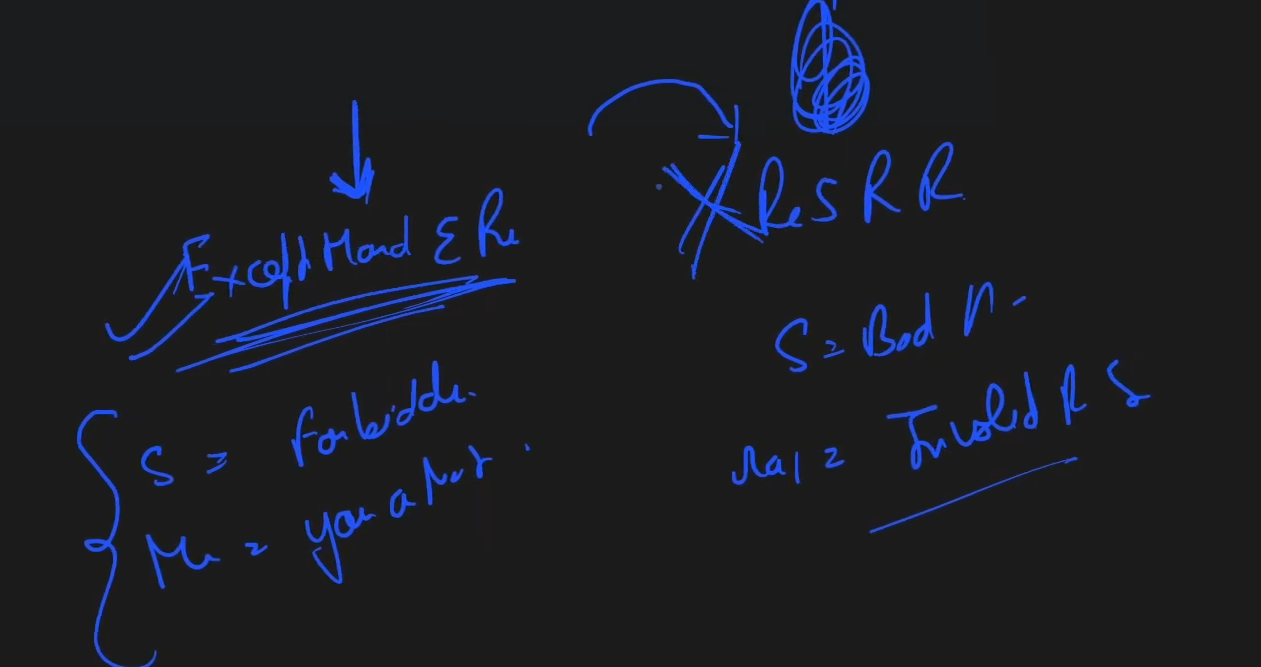 Except Hand E Re
S = Forbidde.
Me = you a Not
X ReS R R
S = Bad R -
Invalid R S